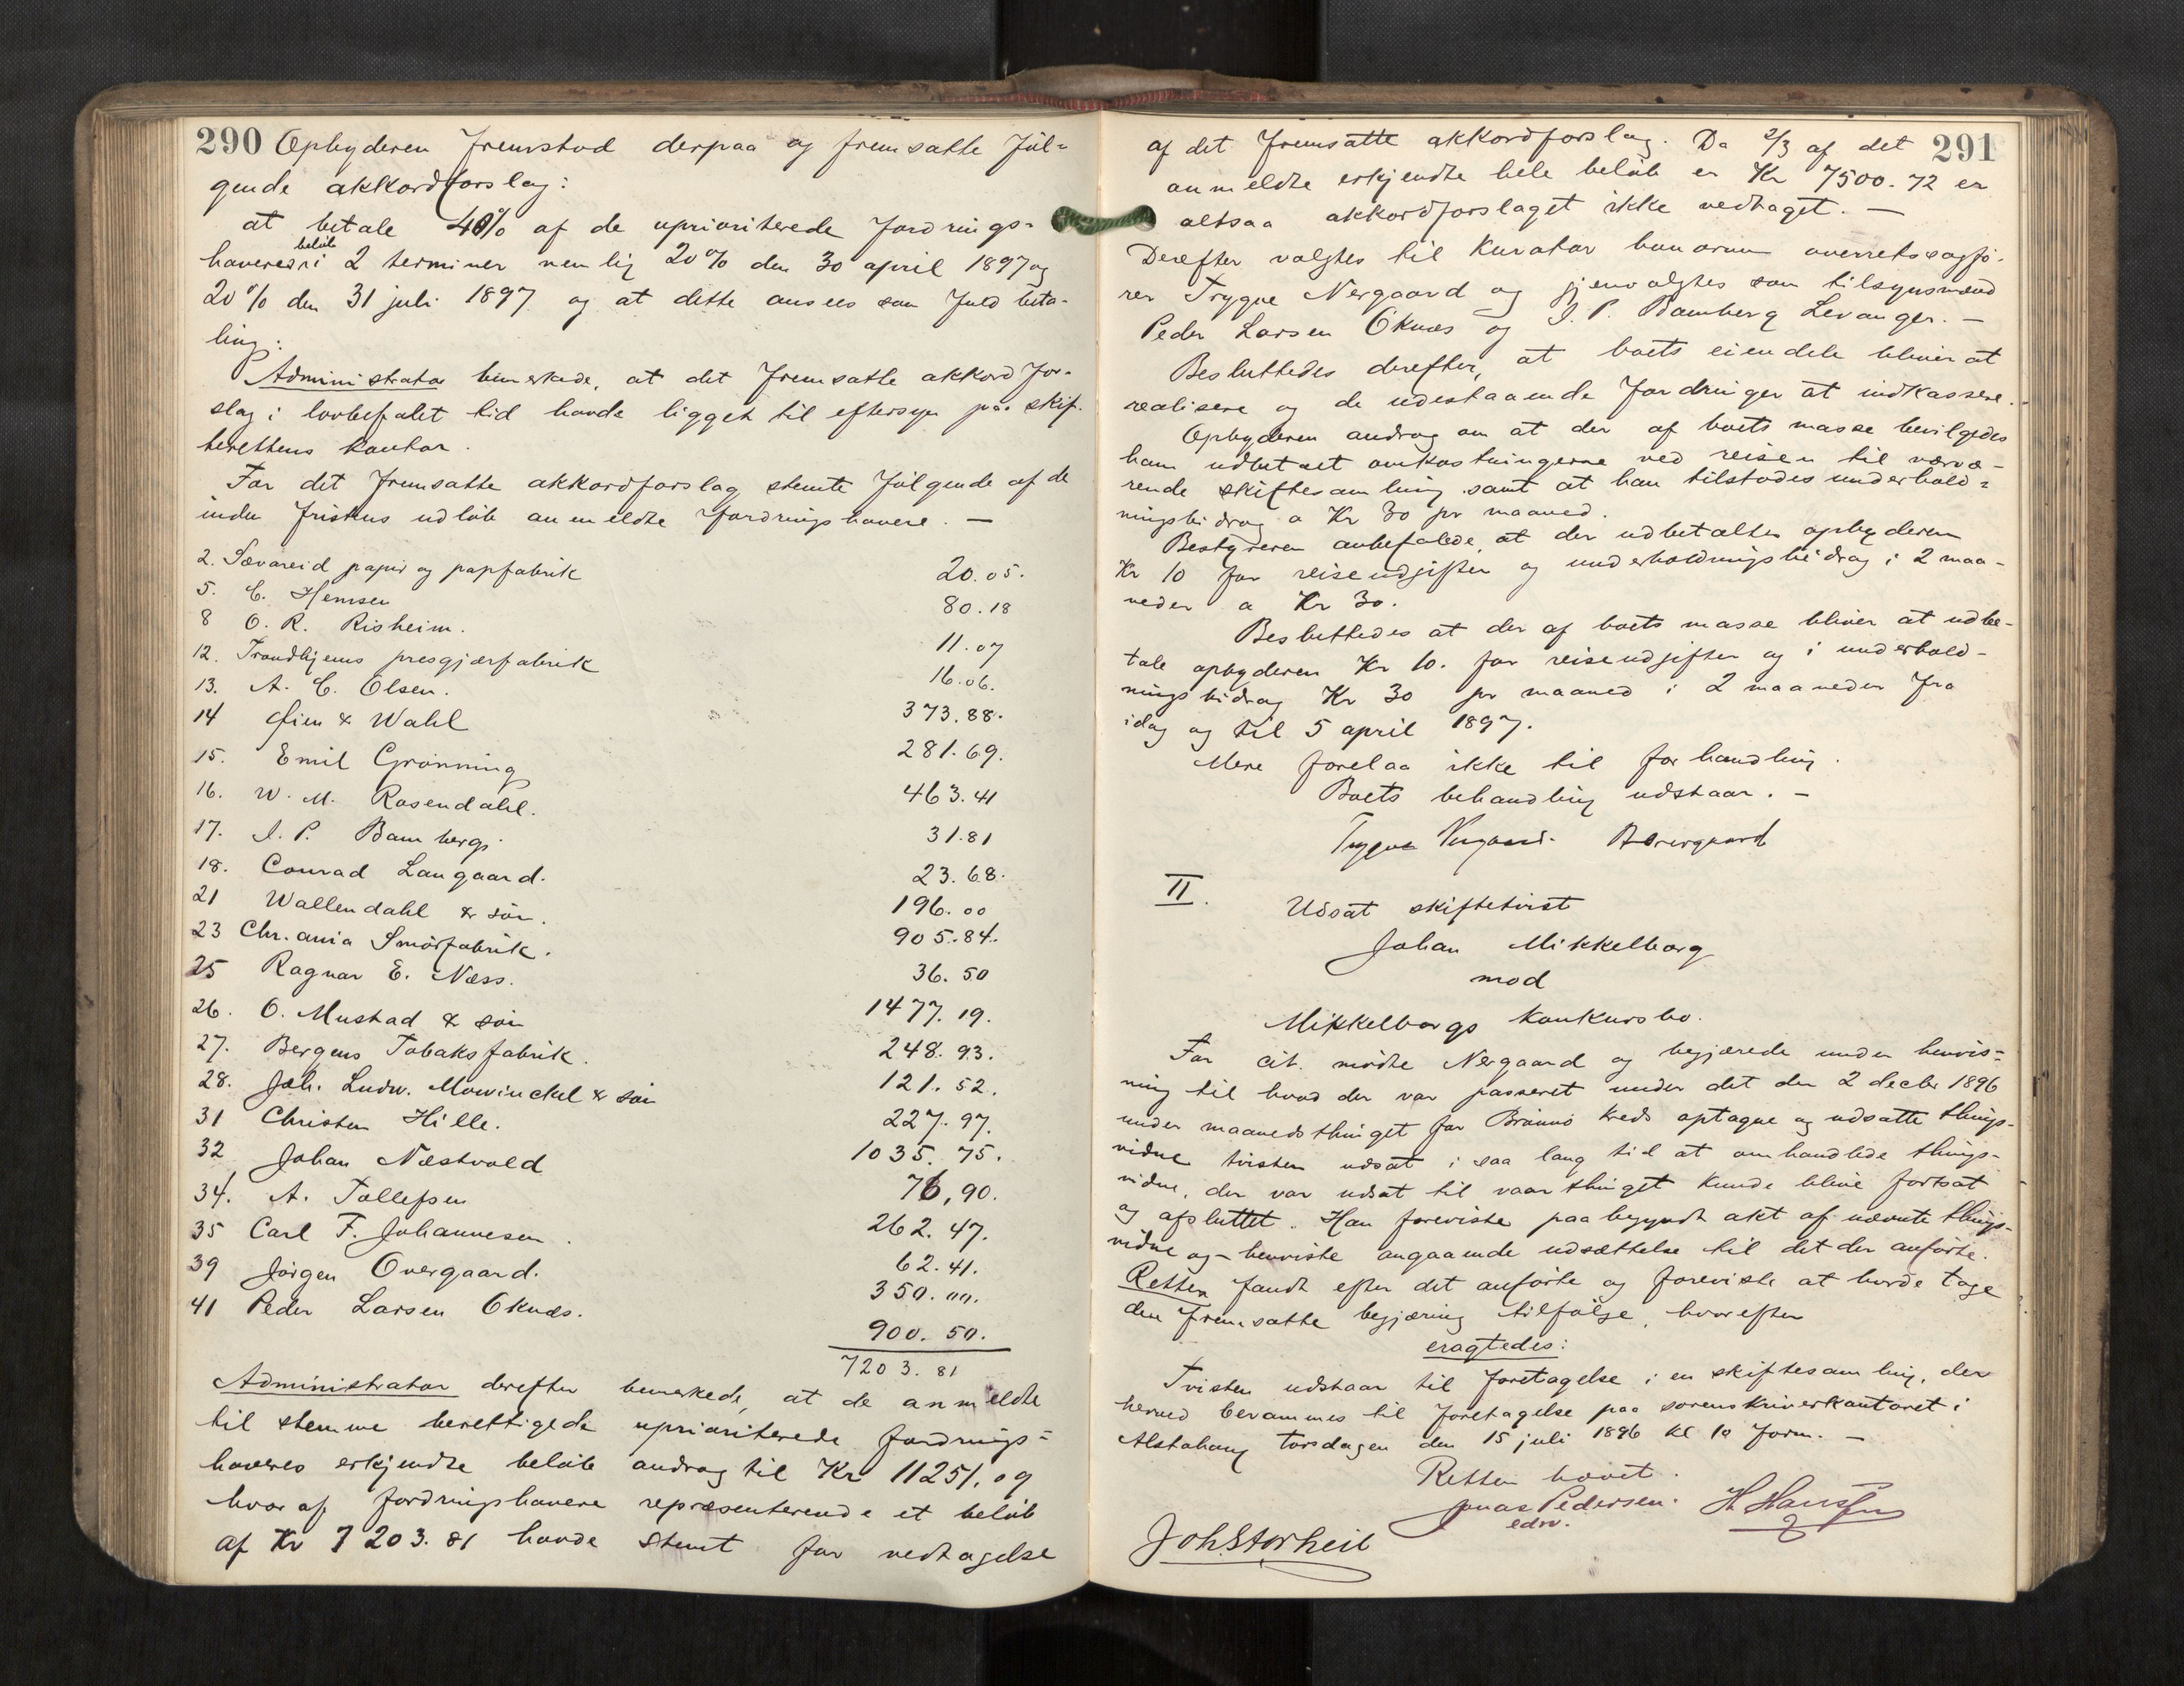 290 Opbyderen fremstod derpaa og fremsatte føl-
gende akkordforslag:
at betale 40% af de uprioriterede fordrings-
haveres beløb i 2 terminer nemlig 20% den 30 april 1897 og
20% den 31 juli 1897 og at dette ansees som fuld beta-
ling:
Administrator bemerkede, at det fremsatte akkordfor-
slag i lovbefalet tid havde ligget til eftersyn paa skif-
terettens kontor.
For det fremsatte akkordforslag stemte følgende af de
inden fristens udløb anmeldte fordringshavere. —
2. Sævareid papir og papfabrik 20.05.
5. C. Hemsen 80.18
8 O. R. Risheim. 11.07
12. Trondhjems presgjærfabrik 16.06.
13. A. C. Olsen. 373.88.
14 Gien & Wahl 281.69.
15. Emil Grønning 463.41
16. W. M. Rosendahl. 31.81
17. I. P. Bamberg. 23.68.
18. Conrad Langaard. 196.00
21 Wallendahl & søn. 905.84.
23 Chr.ania Smørfabrik. 36.50
25 Ragnar E. Næss. 1477.19.
26. O. Mustad & søn 248.93.
27. Bergens Tobaksfabrik. 121.52.
28. Joh. Ludw. Mowinckel & søn 227.97.
31 Christen Hille. 1035.75.
32 Johan Næstvold 76,90.
34. A. Tollefsen 262.47.
35 Carl F. Johannesen. 62.41.
39 Jørgen Overgaard. 350.00.
41 Peder Larsen Oknæs. 900.50.
7203.81
Administrator derefter bemerkede, at de anmeldte
til stemme berettigede uprioriterede fordrings-
haveres erkjendte beløb androg til Kr 11251.09
hvoraf fordringshavere repræsenterende et beløb
af Kr 7203.81 havde stemt for vedtagelse
291
af det fremsatte akkordforslag. Da 2/3 af det
anmeldte erkjendte hele beløb er Kr 7500.72 er
altsaa akkordforslaget ikke vedtaget. —
Derefter valgtes til kurator bonorum overretssagfø-
rer Trygve Nergaard og gjenvalgtes som tilsynsmænd
Peder Larsen Oknæs og I. P. Bamberg Levanger. —
Besluttedes derefter, at boets eiendele bliver at
realisere og de udestaaende fordringer at indkassere.
Opbyderen androg om at der af boets masse bevilgedes
ham udbetalt omkostningerne ved reisen til nærvæ-
rende skiftesamling samt at han tilstodes underhold-
ningsbidrag a Kr 30 pr maaned.
Bestyreren anbefalede, at der udbetaltes opbyderen
Kr 10 for reiseudgifter og underholdningsbidrag i 2 maa-
neder a Kr 30.
Besluttedes at der af boets masse bliver at udbe-
tale opbyderen Kr 10. for reiseudgifter og i underhold-
ningsbidrag Kr 30 pr maaned i 2 maaneder fra
idag og til 5 april 1897.
Mere forelaa ikke til forhandling.
Boets behandling udstaar. —
Trygve Nergaard.
II. Udsat skiftetvist
Johan Mikkelborg
mod
Mikkelborgs konkursbo.
For cit. mødte Nergaard og begjærede under henvis-
ning til hvad der var passeret under det den 2 decbr 1896
under maanedsthinget for Brønnø kreds optagne og udsatte things-
vidne tvisten udsat i saa lang tid at omhandlede things-
vidne, der var udsat til vaarthinget kunde blive fortsat
og afsluttet. Han foreviste paabegyndt akt af nævnte things-
vidne og henviste angaaende udsættelse til det der anførte.
Retten fandt efter det anførte og foreviste at burde tage
den fremsatte begjæring tilfølge, hvorefter
eragtedes:
Tvisten udstaar til foretagelse i en skiftesamling, der
herved berammes til foretagelse paa sorenskriverkontoret i
Alstahaug torsdagen den 15 juli 1896 kl 10 form. —
Retten hævet.
Jonas Pedersen. H Hanssen
edsv.
Joh Storheil